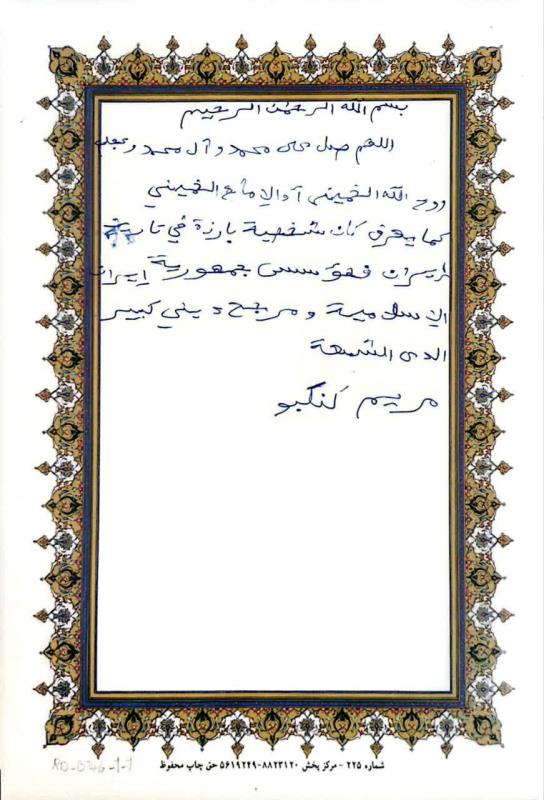 بسم الله الرحمن الرحيم
اللهم صل على محمد و آل محمد و عجل
روح الله الخميني أو الإمام الخميني
كما يعرف كان شخصية بارزة في تاريخ
إيران فهو مؤسس جمهورية إيران
الإسلامية و مرجع ديني كبير
لدى الشيعة
مريم کنگبو
شماره ۲۲۵ - مرکز پخش ۸۸۲۳۱۲۰-۵۶۱۹۲۴۹ حق چاپ محفوظ
RO-B346-1-1